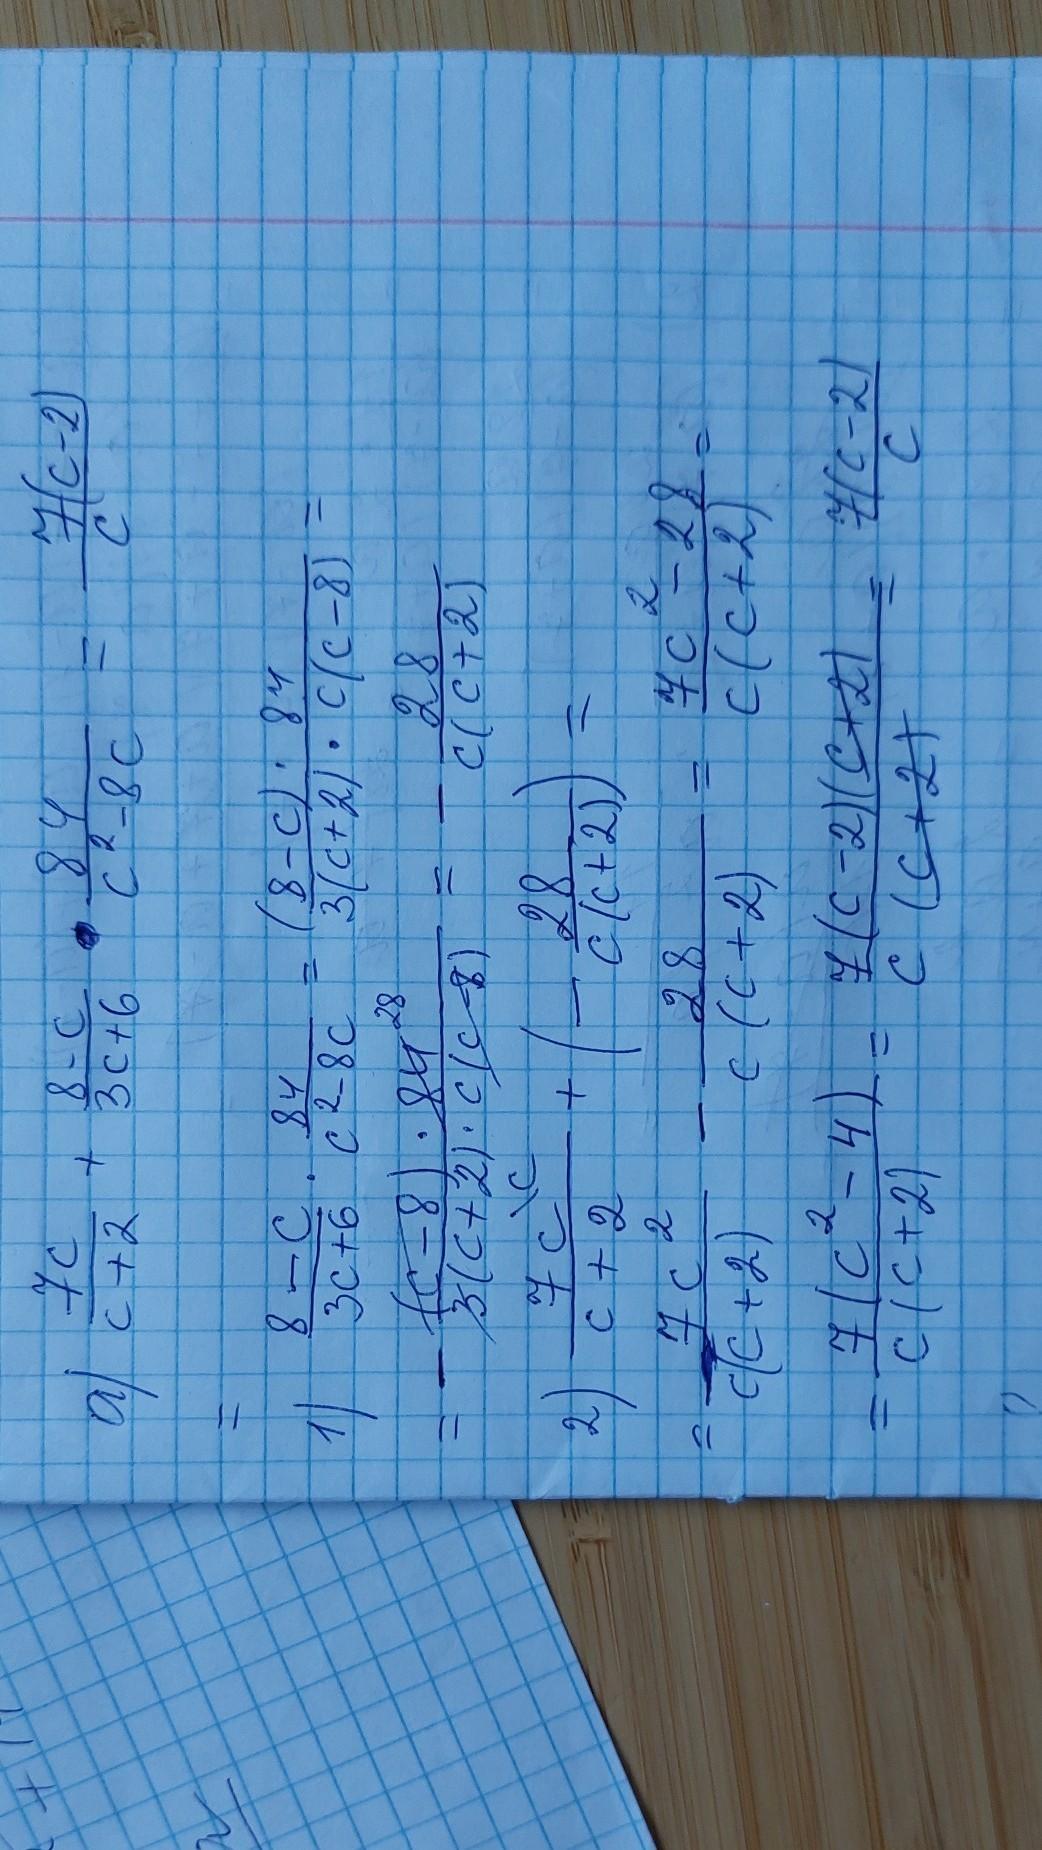 а) 7c/(c+2) + (8-c)/(3c+6) · 84/(c²-8c) = 7(c-2)/c
=
1) (8-c)/(3c+6) · 84/(c²-8c) = (8-c)·84/(3(c+2)·c(c-8)) =
= - (c-8)·84 28/(3(c+2)·c(c-8)) = - 28/(c(c+2))
2) 7c\c/(c+2) + (- 28/(c(c+2))) =
= 7c²/(c(c+2)) - 28/(c(c+2)) = (7c²-28)/(c(c+2)) =
= 7(c²-4)/(c(c+2)) = 7(c-2)(c+2)/(c(c+2)) = 7(c-2)/c